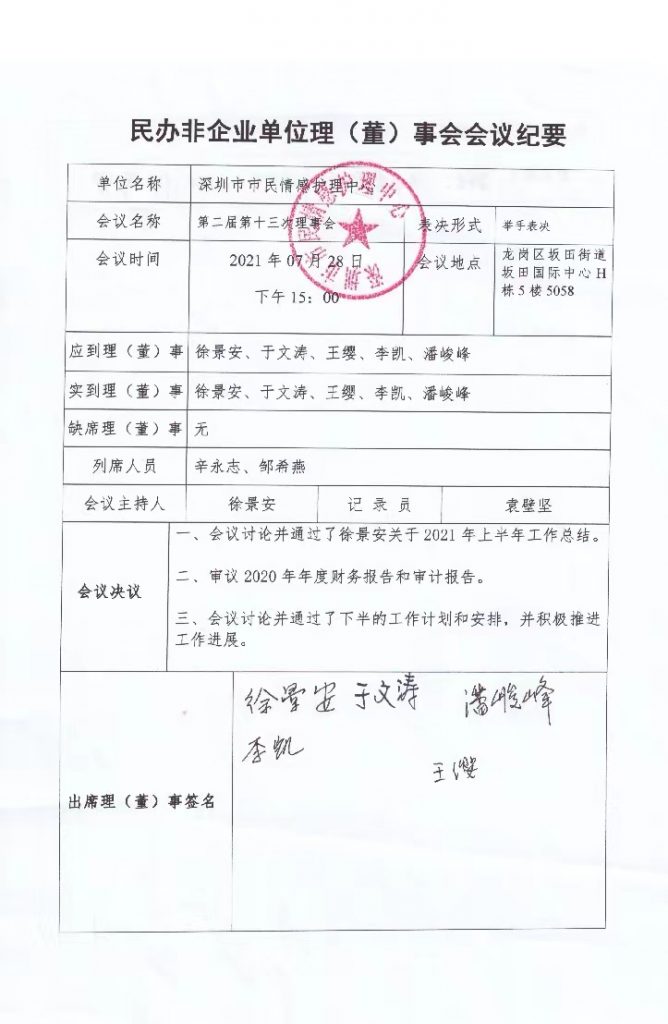 民办非企业单位理（董）事会会议纪要
单位名称 深圳市市民情感护理中心
会议名称 第二届第十三次理事会 表决形式 举手表决
会议时间 2021 年 07 月 28 日
下午 15：00
会议地点 龙岗区坂田街道
坂田国际中心 H
栋 5 楼 5058
应到理（董）事 徐景安、于文涛、王缨、李凯、潘峻峰
实到理（董）事 徐景安、于文涛、王缨、李凯、潘峻峰
缺席理（董）事 无
列席人员 辛永志、邹希燕
会议主持人 徐景安 记 录 员 袁壁坚
会议决议
一、会议讨论并通过了徐景安关于 2021 年上半年工作总结。
二、审议 2020 年年度财务报告和审计报告。
三、会议讨论并通过了下半的工作计划和安排，并积极推进
工作进展。
出席理（董）事签名
徐景安 于文涛 潘峻峰
李凯
王缨
深圳市市民情感护理中心